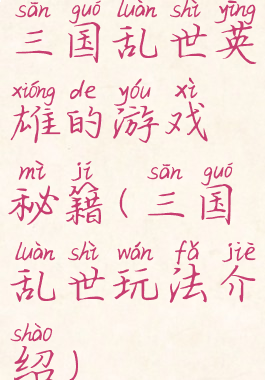 sān guó luàn shì yīng
三国乱世英
xióng de yóu xì
雄的游戏
mì jí sān guó
秘籍(三国
luàn shì wán fǎ jiè
乱世玩法介
shào
绍)